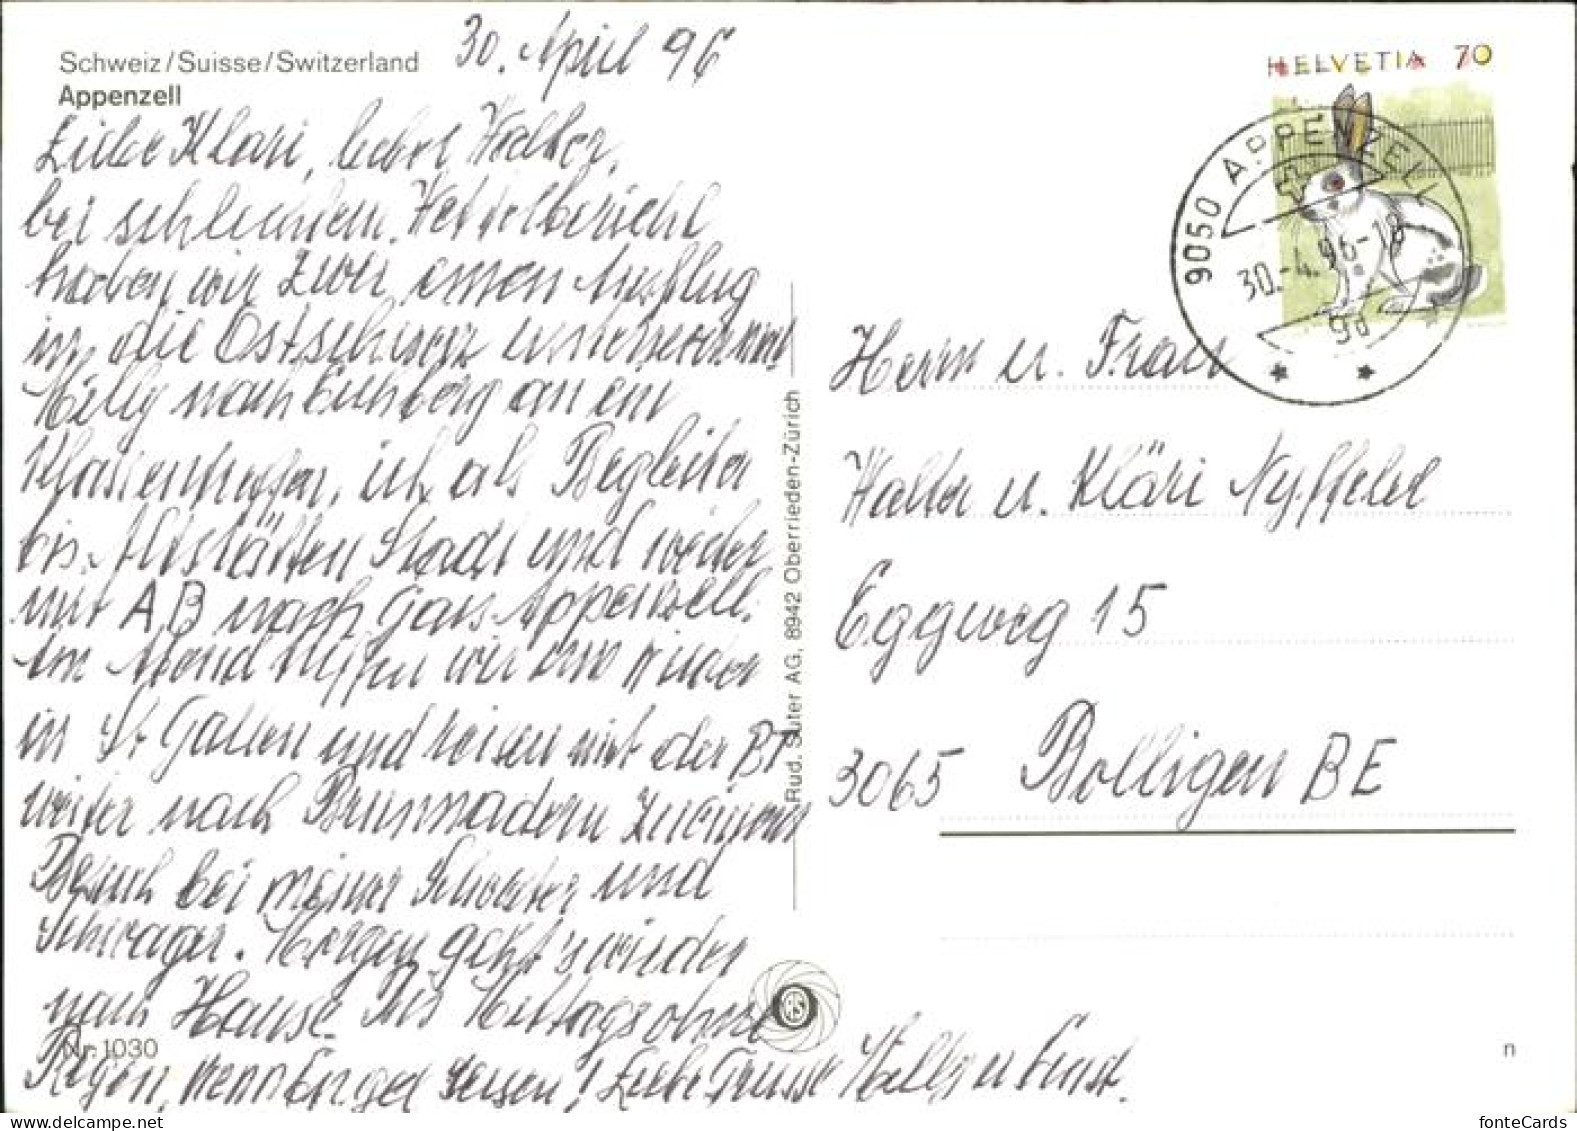 Schweiz/Suisse/Switzerland
Appenzell
30. April 96
Liebe Kläri, lieber Walter,
bei schlechtem Wetterbericht
haben wir zwei einen Ausflug
in die Ostschweiz unternommen
Nelly nach Eichberg an ein
Klassentreffen, ich als Begleiter
bis Altstätten Stadt und wieder
mit AB nach Gais-Appenzell.
Am Abend treffen wir uns wieder
in St Gallen und reisen mit der BT
weiter nach Brunnadern zu einem
Besuch bei meiner Schwester und
Schwager. Morgen geht's wieder
nach Hause. Bis Mittags ohne
Regen, wenn Engel reisen! Liebe Grüsse Nelly u Ernst.
Nr. 1030
Rud. Suter AG, 8942 Oberrieden-Zürich
RS
HELVETIA 70
9050 APPENZELL
30.-4.96-18
9a
Herrn u. Frau
Walter u. Kläri Nyffeler
Eggweg 15
3065 Bolligen BE
n
fonteCards